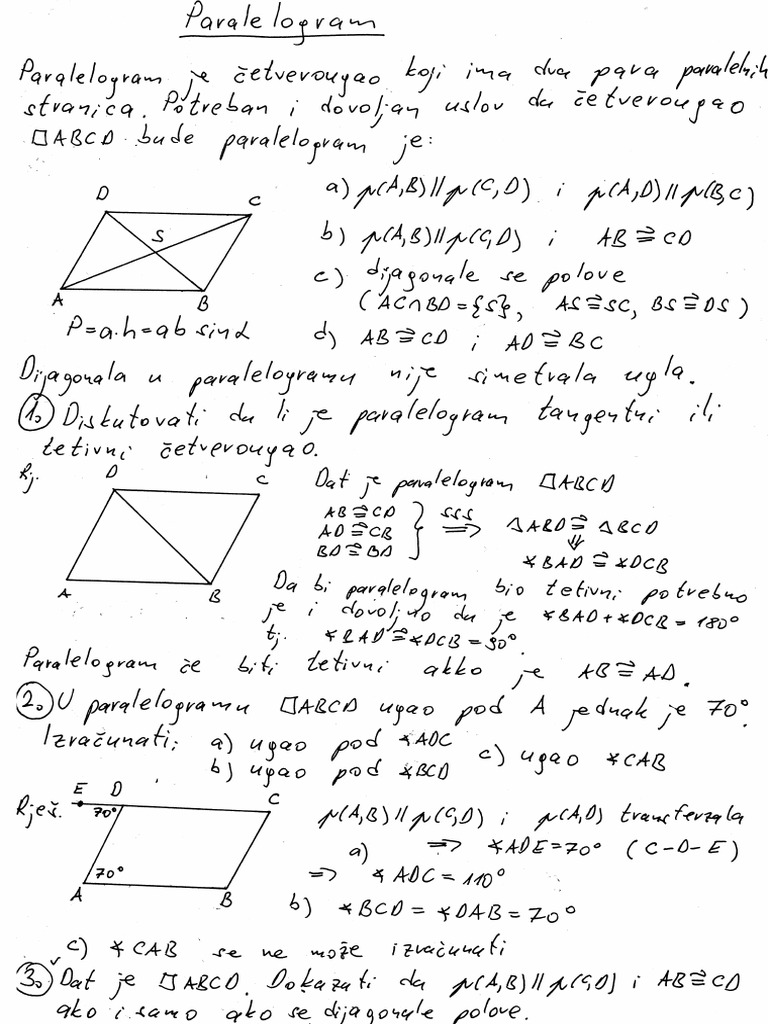 Paralelogram
Paralelogram je četverougao koji ima dva para paralelnih
stranica. Potreban i dovoljan uslov da četverougao
▱ABCD bude paralelogram je:
D
C
S
A
B
a) p(A,B)∥p(C,D) i p(A,D)∥p(B,C)
b) p(A,B)∥p(C,D) i AB≅CD
c) dijagonale se polove
(AC∩BD={S}, AS≅SC, BS≅DS)
P=a.h=ab sinα
d) AB≅CD i AD≅BC
Dijagonala u paralelogramu nije simetrala ugla.
1. Diskutovati da li je paralelogram tangentni ili
tetivni četverougao.
Rj.
D
C
A
B
Dat je paralelogram ▱ABCD
AB≅CD
AD≅CB
BD≅BD
} sss ⇒ △ABD≅△BCD
⇓
∢BAD≅∢DCB
Da bi paralelogram bio tetivni potrebno
je i dovoljno da je ∢BAD+∢DCB=180°
tj. ∢BAD≅∢DCB=90°.
Paralelogram će biti tetivni akko je AB≅AD.
2. U paralelogramu ▱ABCD ugao pod A jednak je 70°.
Izračunati: a) ugao pod ∢ADC
b) ugao pod ∢BCD
c) ugao ∢CAB
Rješ.
E
D
C
70°
70°
A
B
p(A,B)∥p(C,D) i p(A,D) transferzala
a) ⇒ ∢ADE=70° (C-D-E)
⇒ ∢ADC=110°
b) ∢BCD=∢DAB=70°
c) ∢CAB se ne može izračunati
3. Dat je ▱ABCD. Dokazati da p(A,B)∥p(C,D) i AB≅CD
ako i samo ako se dijagonale polove.